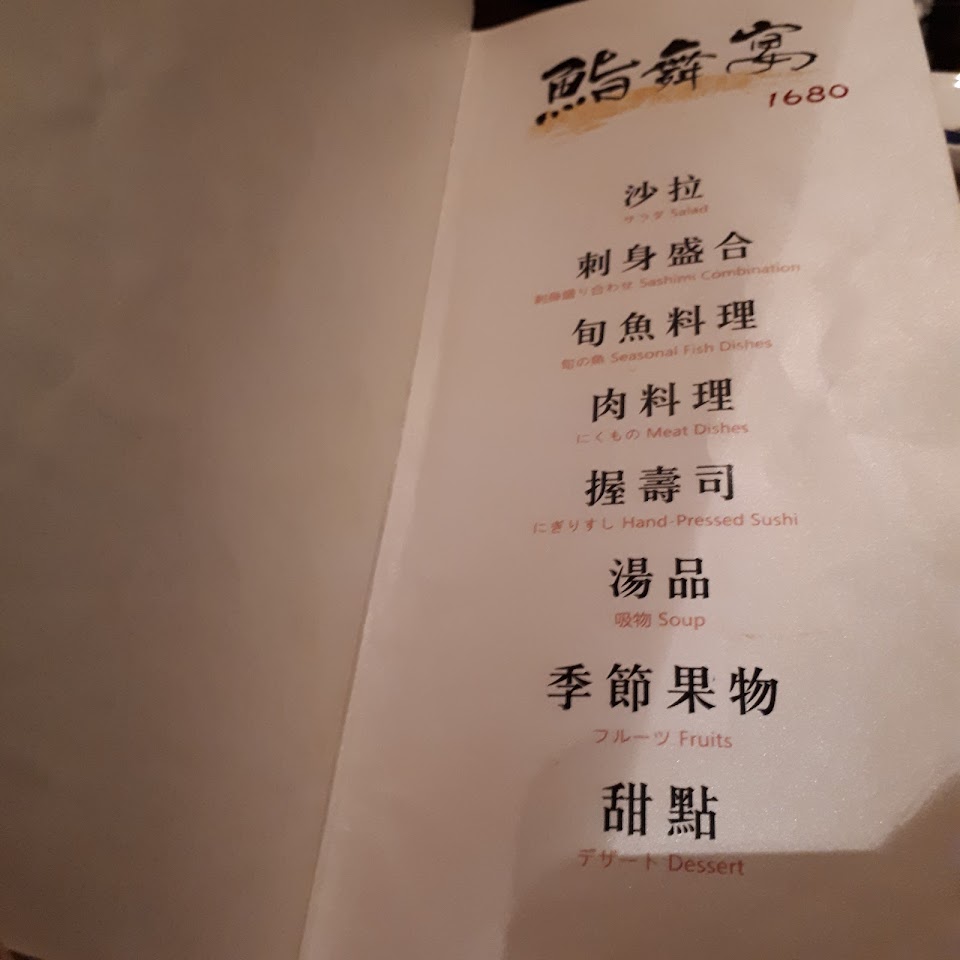 鮨舞宴
1680
沙拉
サラダ Salad
刺身盛合
刺身盛り合わせ Sashimi Combination
旬魚料理
旬の魚 Seasonal Fish Dishes
肉料理
にくもの Meat Dishes
握壽司
にぎりすし Hand-Pressed Sushi
湯品
吸物 Soup
季節果物
フルーツ Fruits
甜點
デザート Dessert